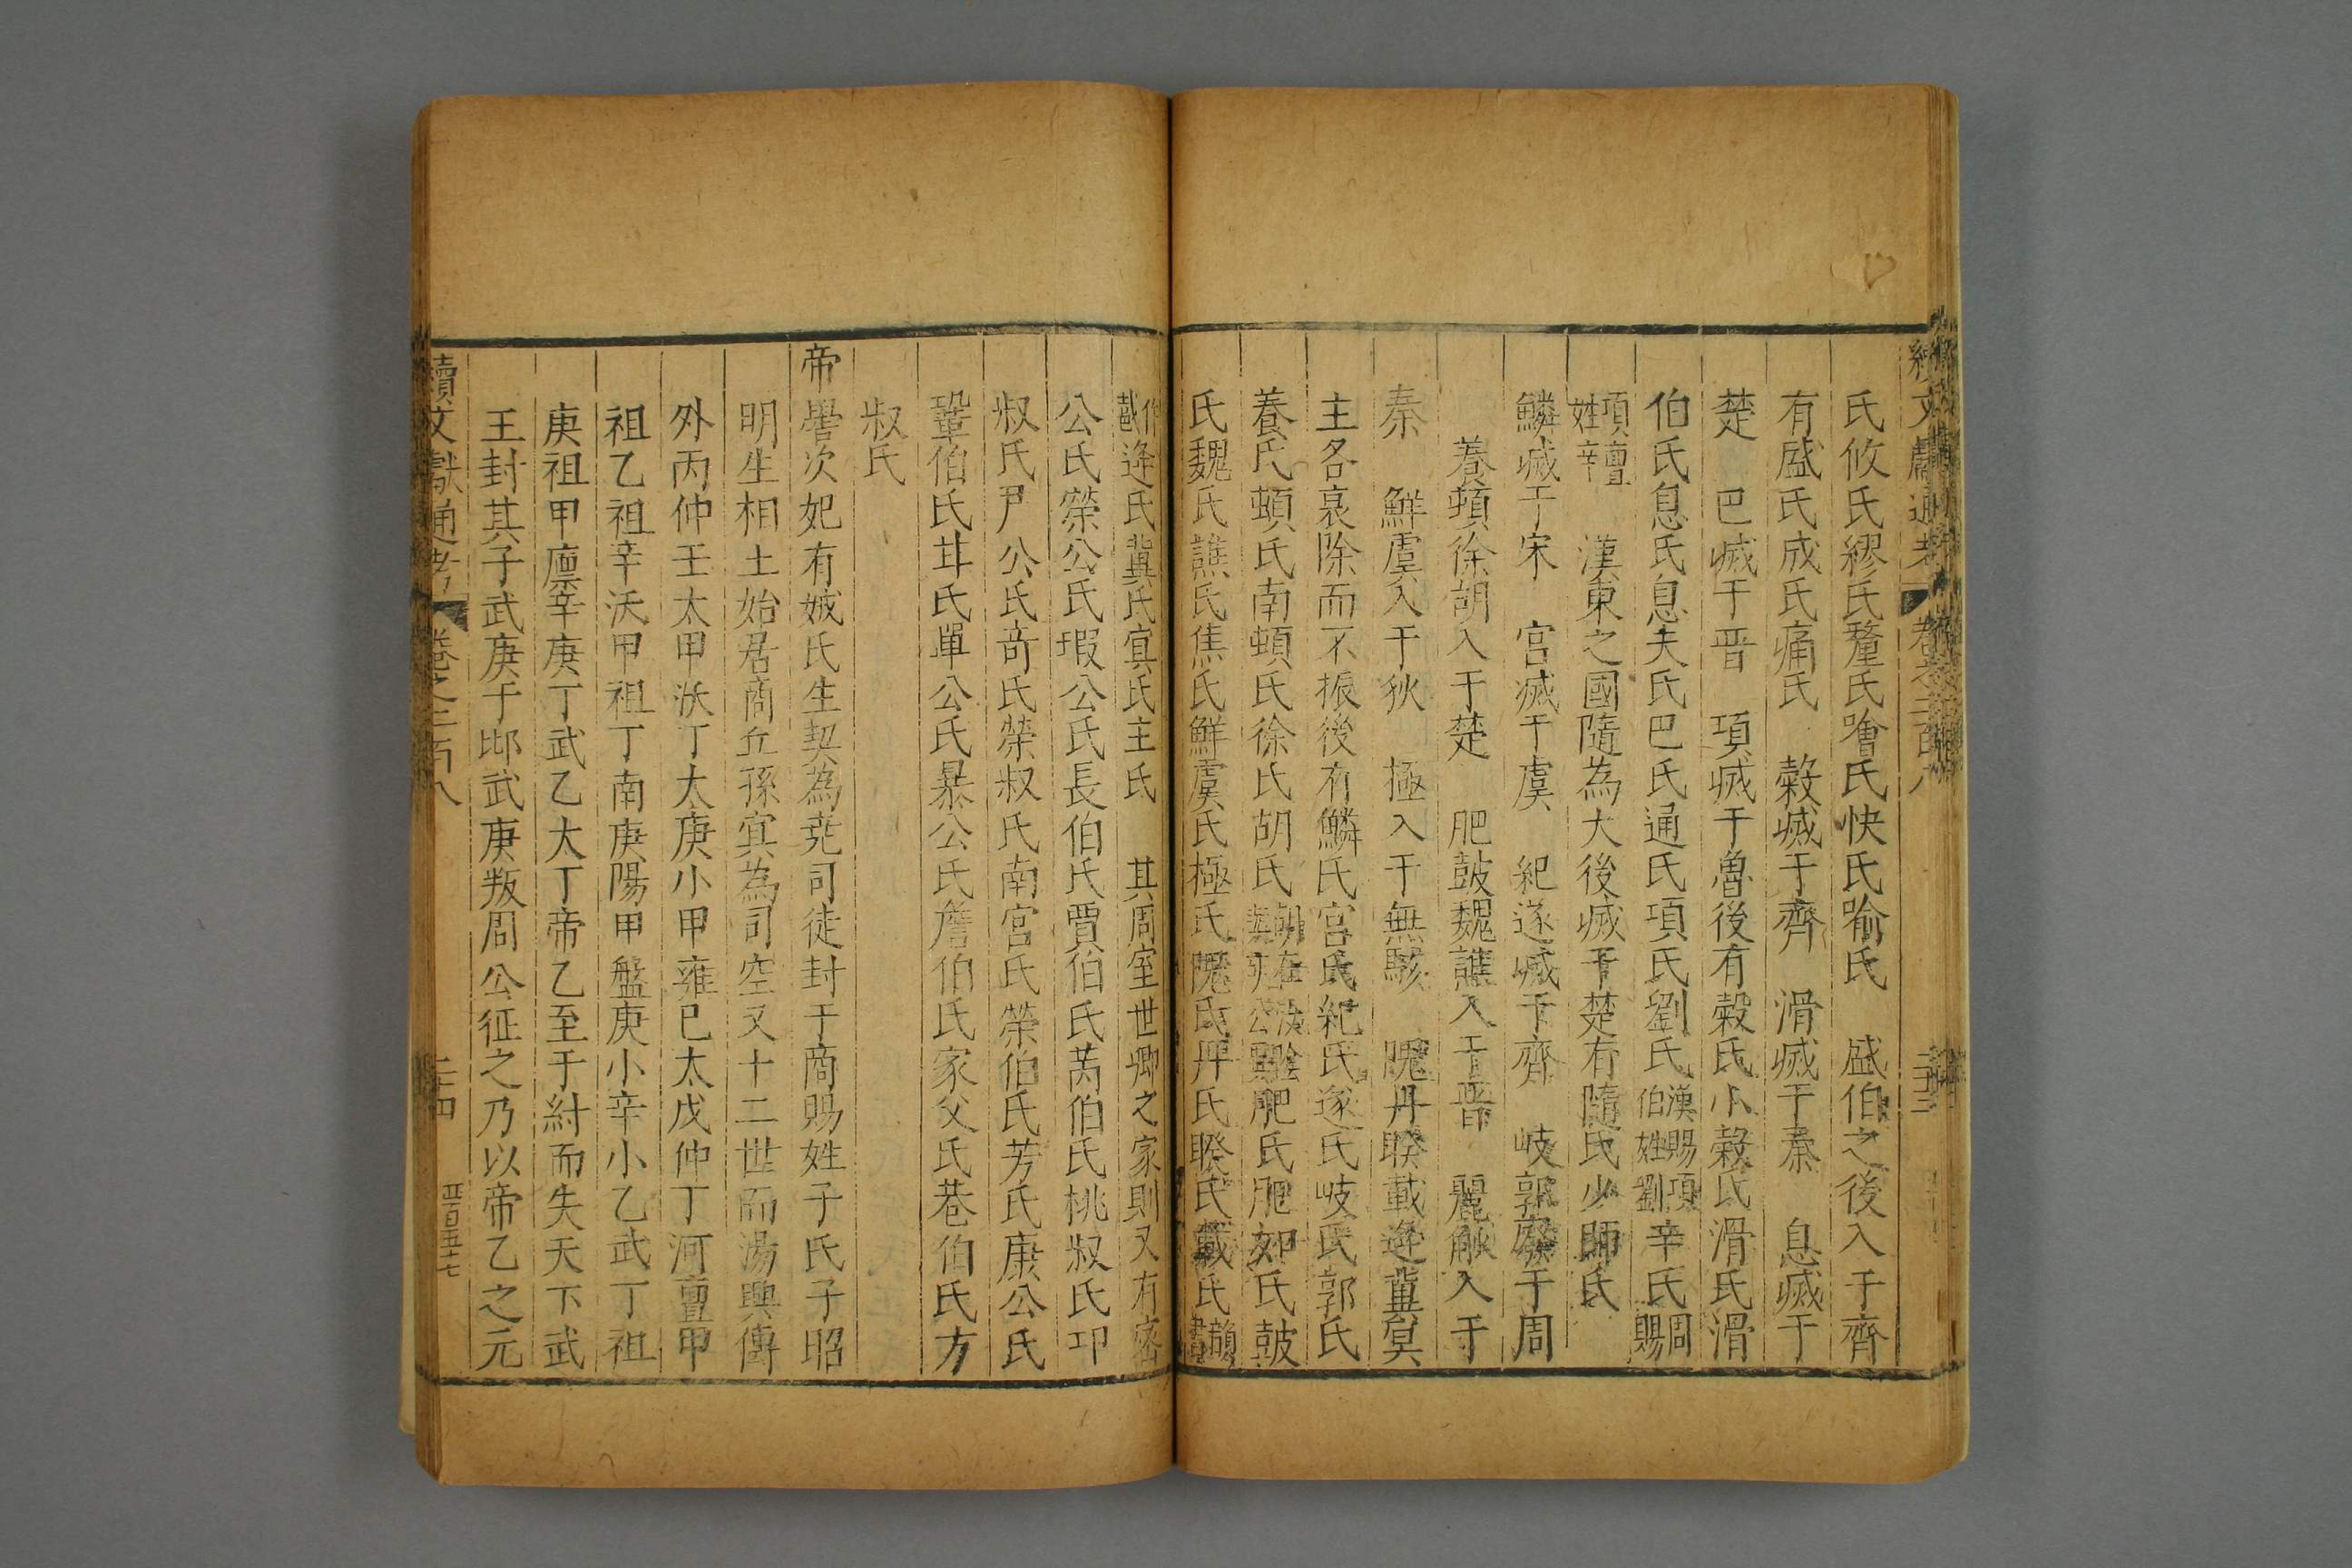 續文獻通考 卷之二百八
氏攸氏繆氏釐氏噲氏快氏喻氏 盛伯之後入于齊
有盛氏成氏痛氏 穀㓕于齊 滑㓕于秦 息㓕于
楚 巴㓕于晋 項㓕于魯後有穀氏小穀氏滑氏滑
伯氏息氏息夫氏巴氏通氏項氏劉氏漢賜項伯姓劉辛氏周賜
項亶姓辛 漢東之國隨為大後㓕于楚有隨氏少師氏
鱗㓕于宋 宮㓕于虞 紀遂㓕于齊 岐郭廢于周
養頓徐胡入于楚 肥鼓魏譙入于晋 麗觧入于
秦 鮮虞入于狄 極入于無駭 隗丹暌載逄冀㝠
主各哀除而不振後有鱗氏宮氏紀氏遂氏岐氏郭氏
養氏頓氏南頓氏徐氏胡氏肥氏肥如氏鼓
氏魏氏譙氏焦氏鮮虞氏極氏隗氏丹氏暌氏戴氏
逄氏冀氏㝠氏主氏 其周室世卿之家則又有密
公氏榮公氏瑕公氏長伯氏賈伯氏芮伯氏桃叔氏卭
叔氏尹公氏竒氏榮叔氏南宮氏榮伯氏芳氏康公氏
鞏伯氏甘氏單公氏暴公氏詹伯氏家父氏巷伯氏方
叔氏
帝嚳次妃有娀氏生契為堯司徒封于商賜姓子氏子昭
明生相土始居商丘孫㝠為司空又十二世而湯興傳
外丙仲壬太甲沃丁太庚小甲雍已太戊仲丁河亶甲
祖乙祖辛沃甲祖丁南庚陽甲盤庚小辛小乙武丁祖
庚祖甲廪辛庚丁武乙太丁帝乙至于紂而失天下武
王封其子武庚于邶武庚叛周公征之乃以帝乙之元
續文獻通考 卷之二百八 二十四